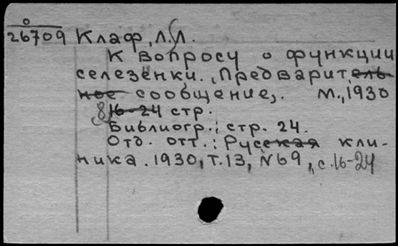 26709 Клаф, Л.Л.
К вопросу о функции
селезенки. Предваритель-
ное сообщение,. М., 1930
8 16-24 стр.
Библиогр.: стр. 24.
Отд. отт.: Русская кли-
ника. 1930, т.13, №69, с.16-24